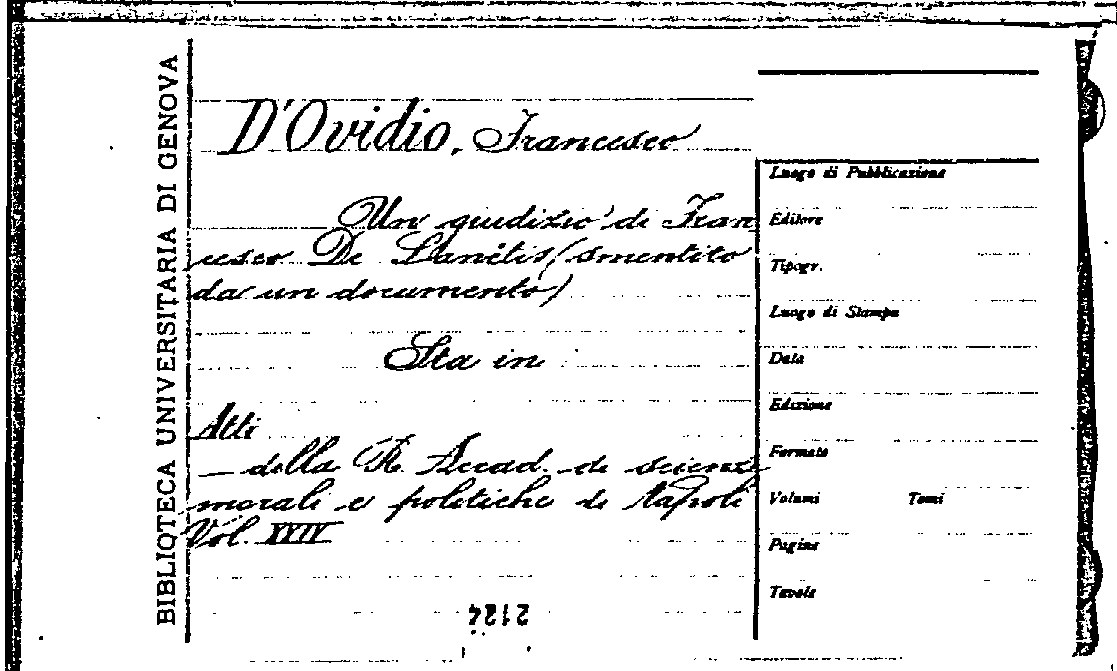 BIBLIOTECA UNIVERSITARIA DI GENOVA
D'Ovidio, Francesco
Un giudizio di Fran
cesco De Sanctis (smentito
da un documento)
Sta in
Atti
— della R. Accad. di scienze
morali e politiche di Napoli
Vol. XXIV
Luogo di Pubblicazione
Editore
Tipogr.
Luogo di Stampa
Data
Edizione
Formato
Volumi Tomi
Pagine
Tavole
2124